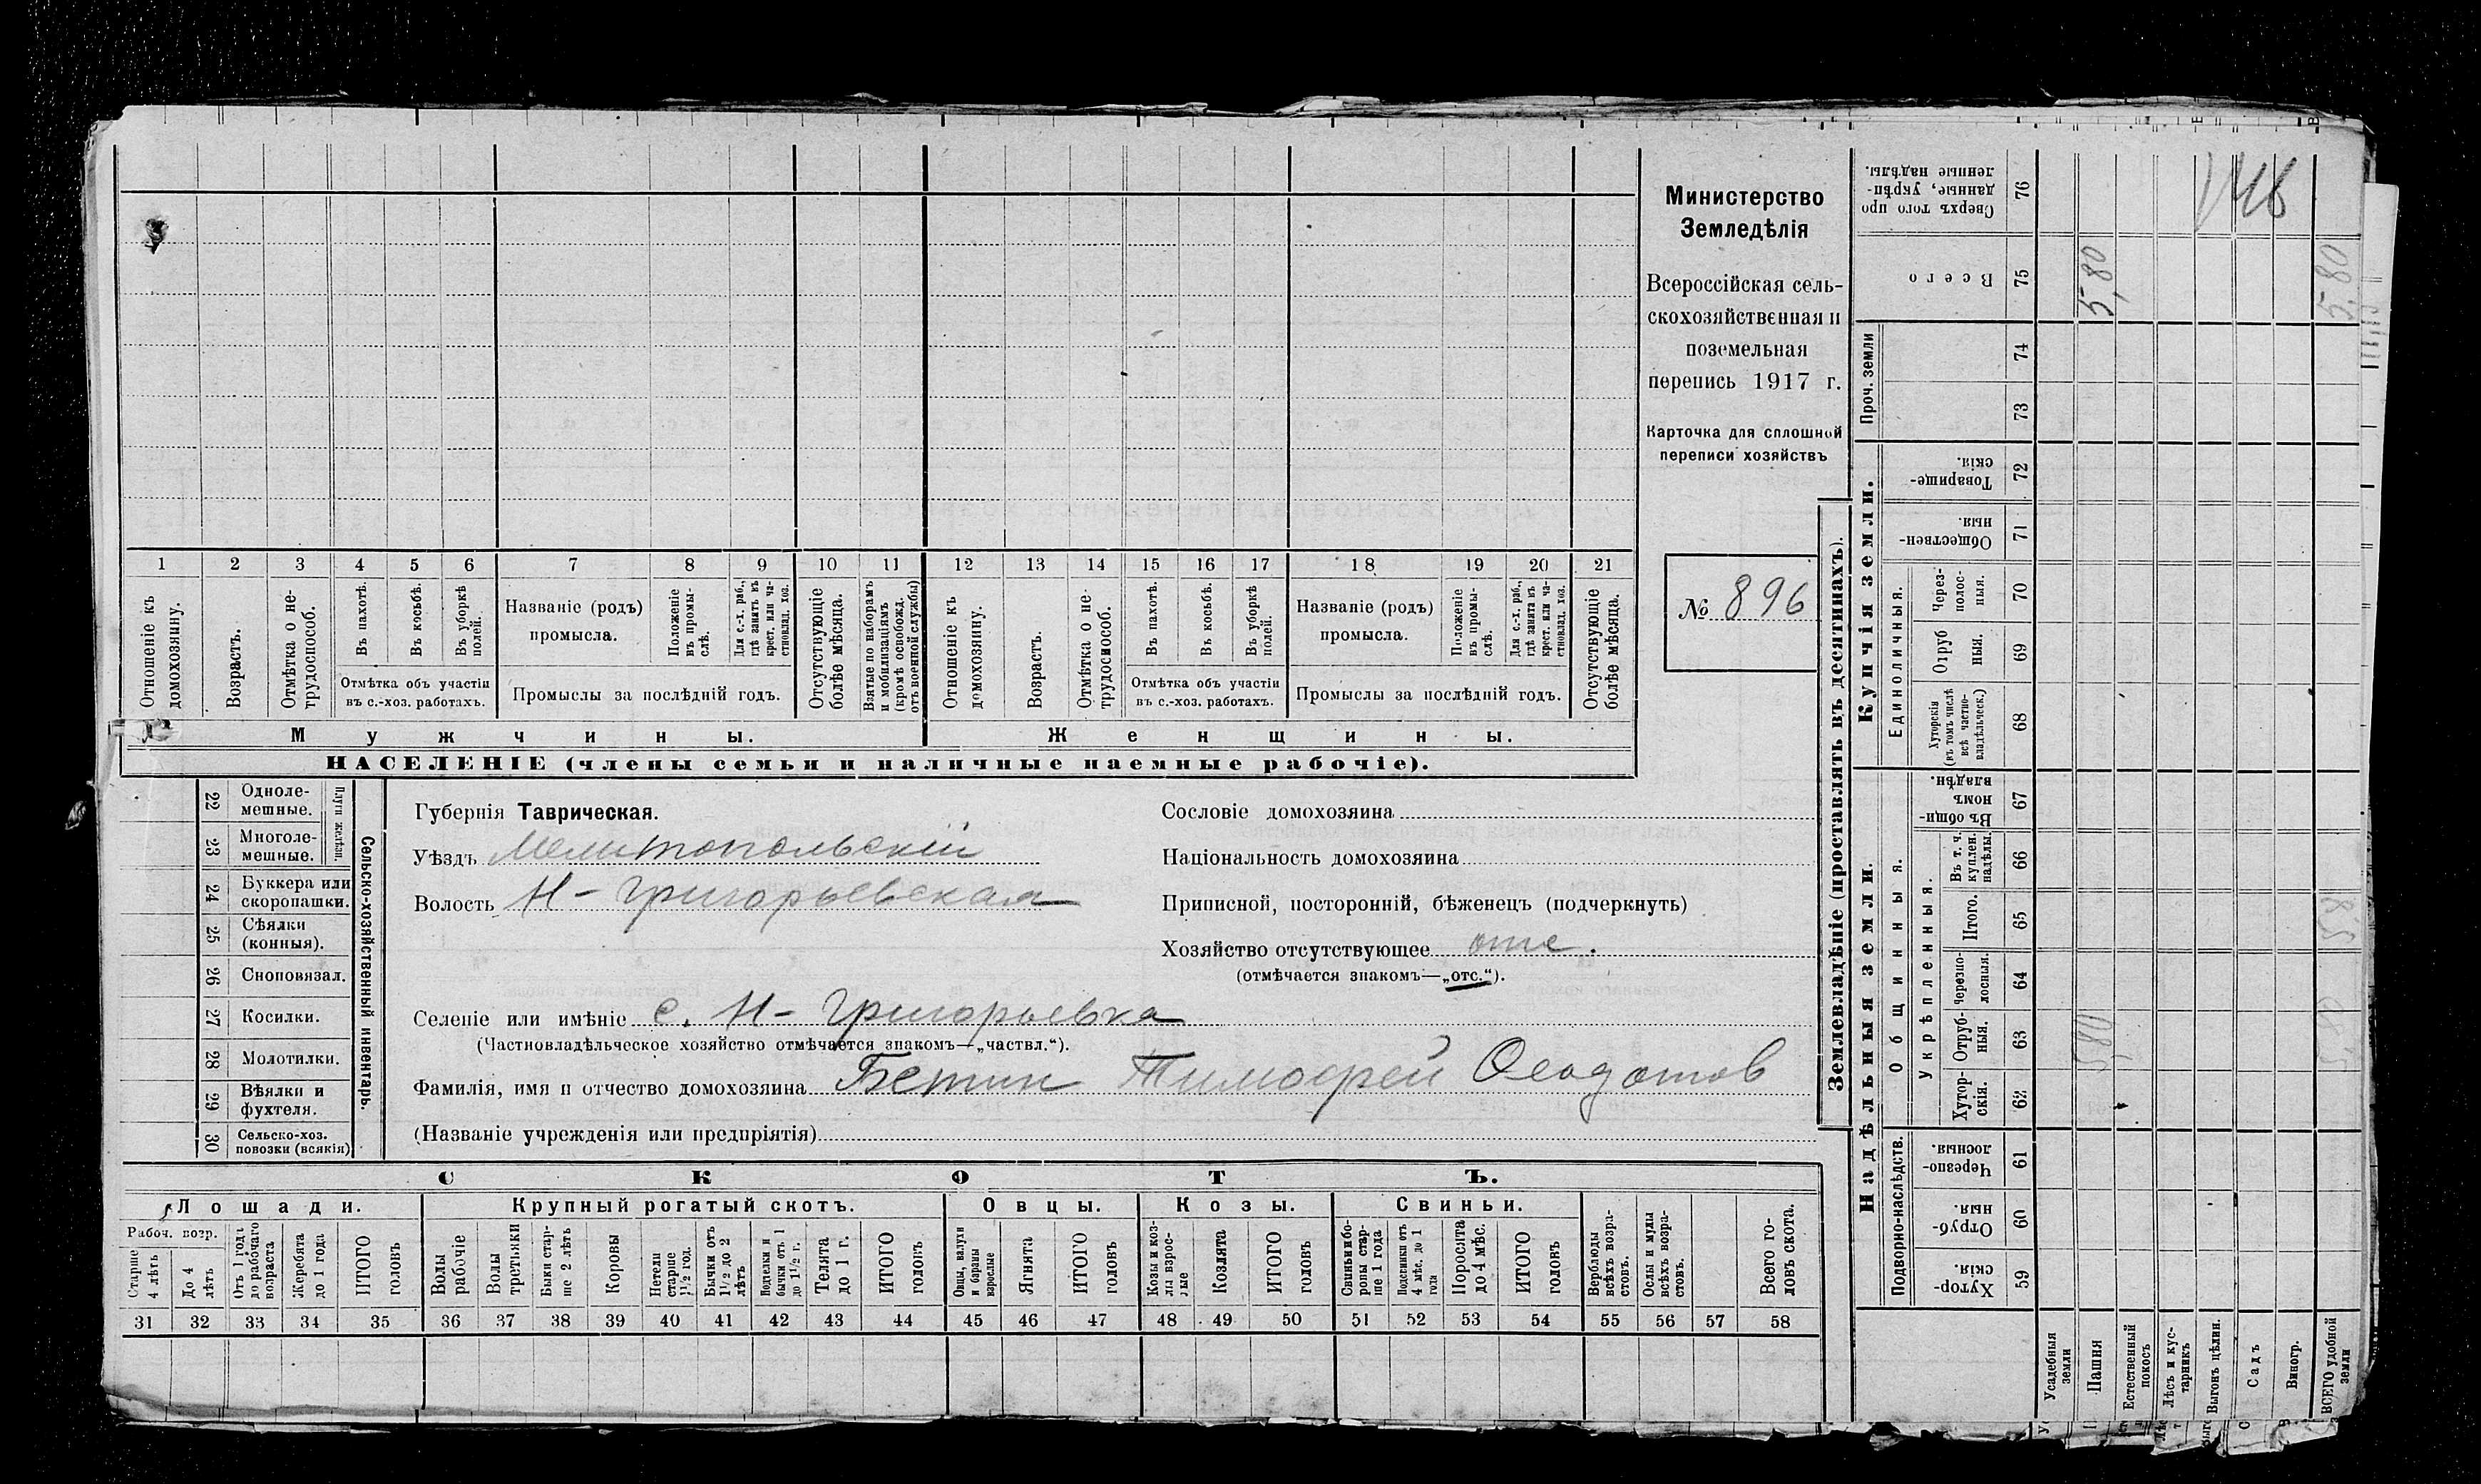 Министерство
Земледѣлія
Всероссійская сель-
скохозяйственная и
поземельная
перепись 1917 г.
Карточка для сплошной
переписи хозяйствъ
№ 896
1 2 3 4 5 6 7 8 9 10 11 12 13 14 15 16 17 18 19 20 21
Отношеніе къ домохозяину.
Возрастъ.
Отмѣтка о не-трудоспособ.
Въ пахотѣ.
Въ косьбѣ.
Въ уборкѣ полей.
Отмѣтка объ участіи
въ с.-хоз. работахъ.
Названіе (родъ)
промысла.
Положеніе въ промы-слѣ.
Для с.-х. раб., гдѣ занятъ въ крест. или ча-стновлад. хоз.
Промыслы за послѣдній годъ.
Отсутствующіе болѣе мѣсяца.
Взятые по наборамъ и мобилизаціямъ (кромѣ освобожд. отъ военной службы)
Отношеніе къ домохозяину.
Возрастъ.
Отмѣтка о не-трудоспособ.
Въ пахотѣ.
Въ косьбѣ.
Въ уборкѣ полей.
Отмѣтка объ участіи
въ с.-хоз. работахъ.
Названіе (родъ)
промысла.
Положеніе въ промы-слѣ.
Для с.-х. раб., гдѣ занята въ крест. или ча-стновлад. хоз.
Промыслы за послѣдній годъ.
Отсутствующіе болѣе мѣсяца.
Мужчины. Женщины.
НАСЕЛЕНІЕ (члены семьи и наличные наемные рабочіе).
22 Одноле-мешные.
23 Многоле-мешные.
Плуги желѣзн.
24 Буккера или скоропашки.
25 Сѣялки (конныя).
26 Сноповязал.
27 Косилки.
28 Молотилки.
29 Вѣялки и фухтеля.
30 Сельско-хоз. повозки (всякія)
Сельско-хозяйственный инвентарь.
Губернія Таврическая.
Уѣздъ Мелитопольскій
Волость Н-Григорьевская
Сословіе домохозяина
Національность домохозяина
Приписной, посторонній, бѣженецъ (подчеркнуть)
Хозяйство отсутствующее отс.
(отмѣчается знакомъ—„отс.“).
Селеніе или имѣніе с. Н-Григорьевка
(Частновладѣльческое хозяйство отмѣчается знакомъ—„частвл.“).
Фамилія, имя и отчество домохозяина Бетин Тимофей Феодотов
(Названіе учрежденія или предпріятія)
СКОТЪ.
Лошади. Крупный рогатый скотъ. Овцы. Козы. Свиньи.
Рабоч. возр.
Старше 4 лѣтъ
До 4 лѣтъ
Отъ 1 года до рабочаго возраста
Жеребята до 1 года
ИТОГО головъ
Волы рабочіе
Волы третьяки
Быки стар-ше 2 лѣтъ
Коровы
Нетели старше 1½ год.
Бычки отъ 1½ до 2 лѣтъ
Подтелки и бычки отъ 1 до 1½ г.
Телята до 1 г.
ИТОГО головъ
Овцы, валухи и бараны взрослые
Ягнята
ИТОГО головъ
Козы и коз-лы взрос-лые
Козлята
ИТОГО головъ
Свиньи и бо-ровы стар-ше 1 года
Подсвинки отъ 4 мѣс. до 1 года
Поросята до 4 мѣс.
ИТОГО головъ
Верблюды всѣхъ возра-стовъ.
Ослы и мулы всѣхъ возра-стовъ.
Всего го-ловъ скота.
31 32 33 34 35 36 37 38 39 40 41 42 43 44 45 46 47 48 49 50 51 52 53 54 55 56 57 58
Землевладѣніе (проставлять въ десятинахъ).
Надѣльныя земли.
Купчія земли.
Проч. земли
Подворно-наслѣдств.
Общинныя.
Укрѣпленныя.
Единоличныя.
Сверхъ того про данные, укрѣп-ленные надѣлы. 76
Всего 75
74
73
Товарище-скія. 72
Обществен-ныя. 71
Через-полос-ныя. 70
Отруб ныя. 69
Хуторскія (въ томъ числѣ всѣ частно-владѣльческ.) 68
Въ общи-номъ владѣн. 67
Въ т. ч. куплен. надѣлы. 66
Итого. 65
Черезпо-лосныя. 64
Отруб-ныя. 63
Хутор-скія. 62
Черезпо-лосныя. 61
Отруб-ныя. 60
Хутор-скія. 59
Усадебныя земли
Пашня
Естественный покосъ
Лѣсъ и кус-тарникъ
Выгонъ цѣлин.
Садъ
Виногр.
ВСЕГО удобной земли
146
5,80
5,80
5,80